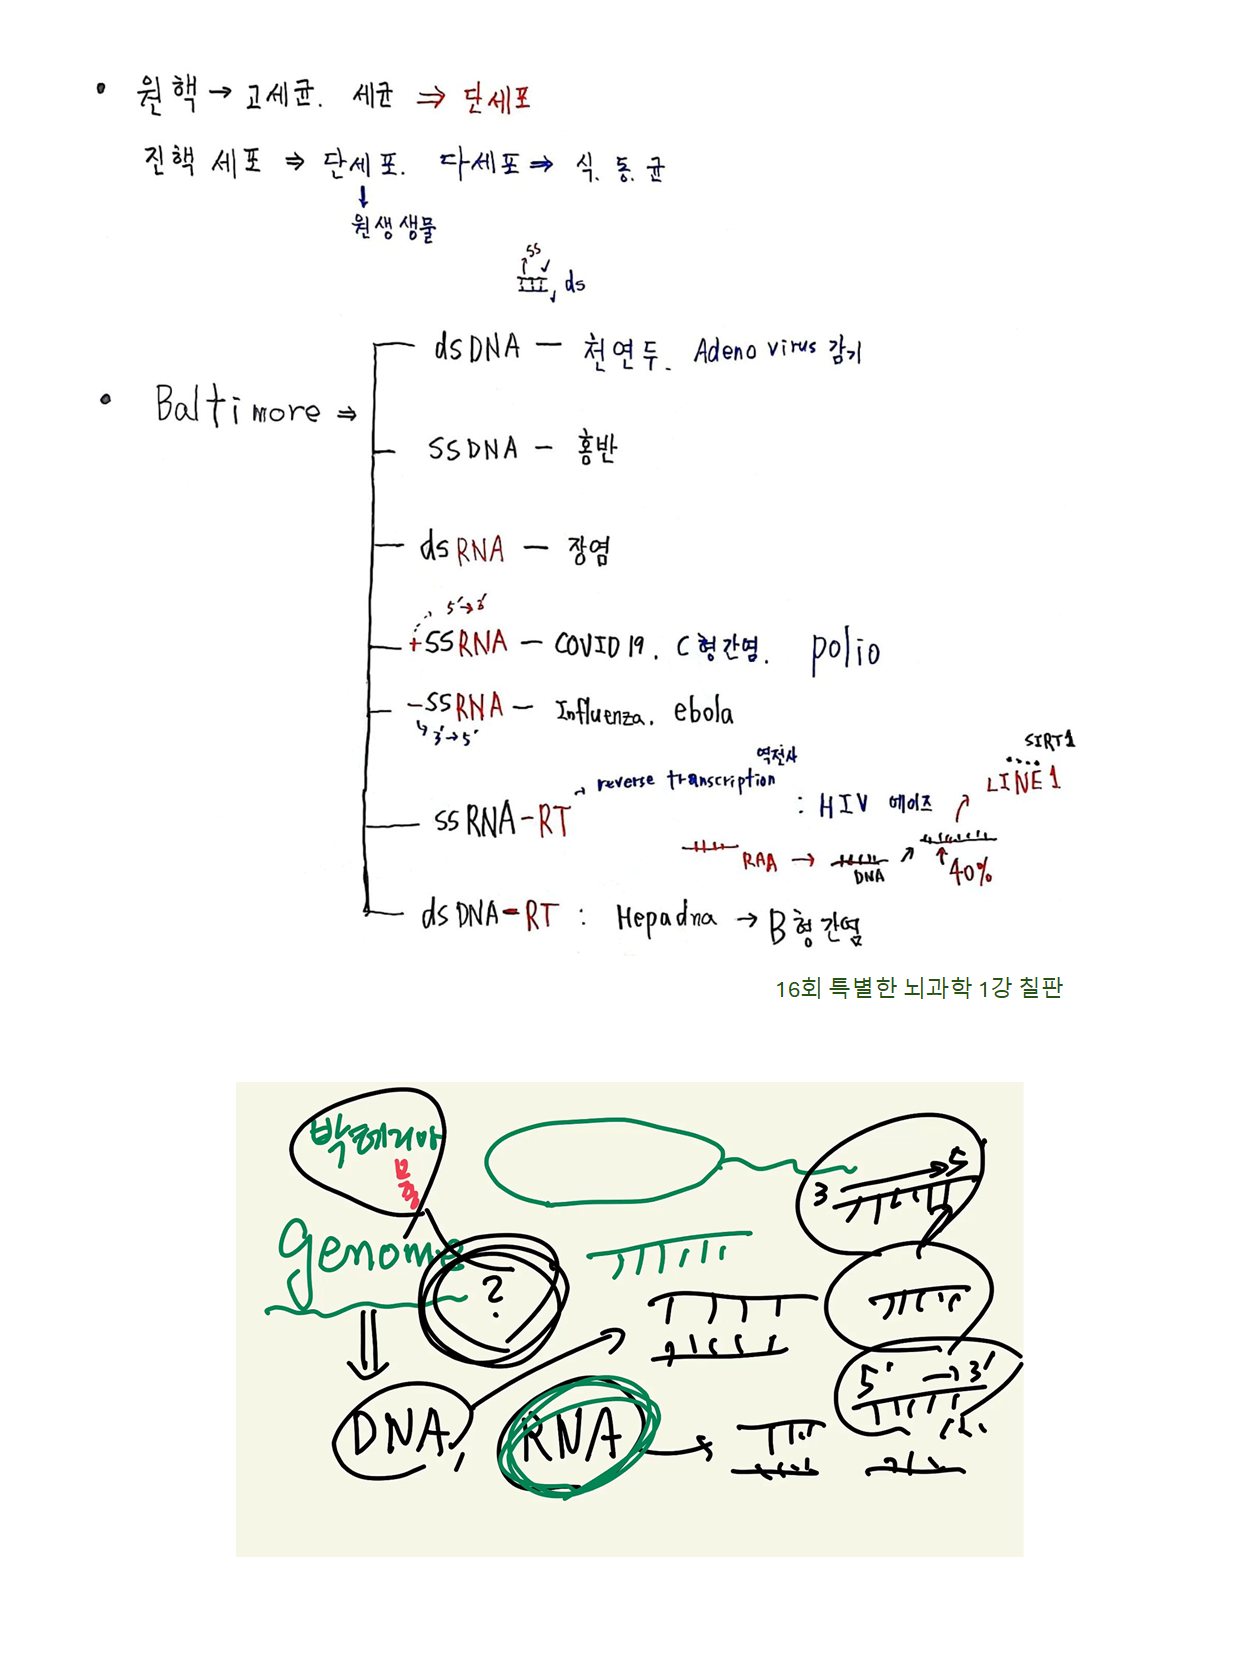 • 원핵 → 고세균. 세균 ⇒ 단세포
진핵 세포 ⇒ 단세포. 다세포 ⇒ 식. 동. 균
↓
원생생물
ss
ds
dsDNA — 천연두. Adeno virus 감기
• Baltimore ⇒
SSDNA — 홍반
dsRNA — 장염
5'→3'
+SSRNA — COVID19. C형간염. polio
-SSRNA — Influenza. ebola
3'→5'
SIRT1
역전사
reverse transcription
LINE1
ssRNA-RT : HIV 에이즈
RNA → DNA
40%
dsDNA-RT : Hepadna → B형간염
16회 특별한 뇌과학 1강 칠판
박테리아
3 5
genome
?
5' → 3'
DNA, RNA